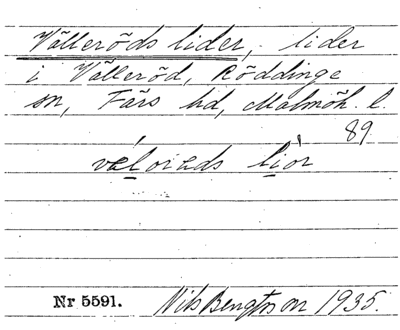 Välleröds lider, lider
i Välleröd, Röddinge
sn, Färs hd, Malmöh. l.
89
Nr 5591. Nils Bengtsson 1935.